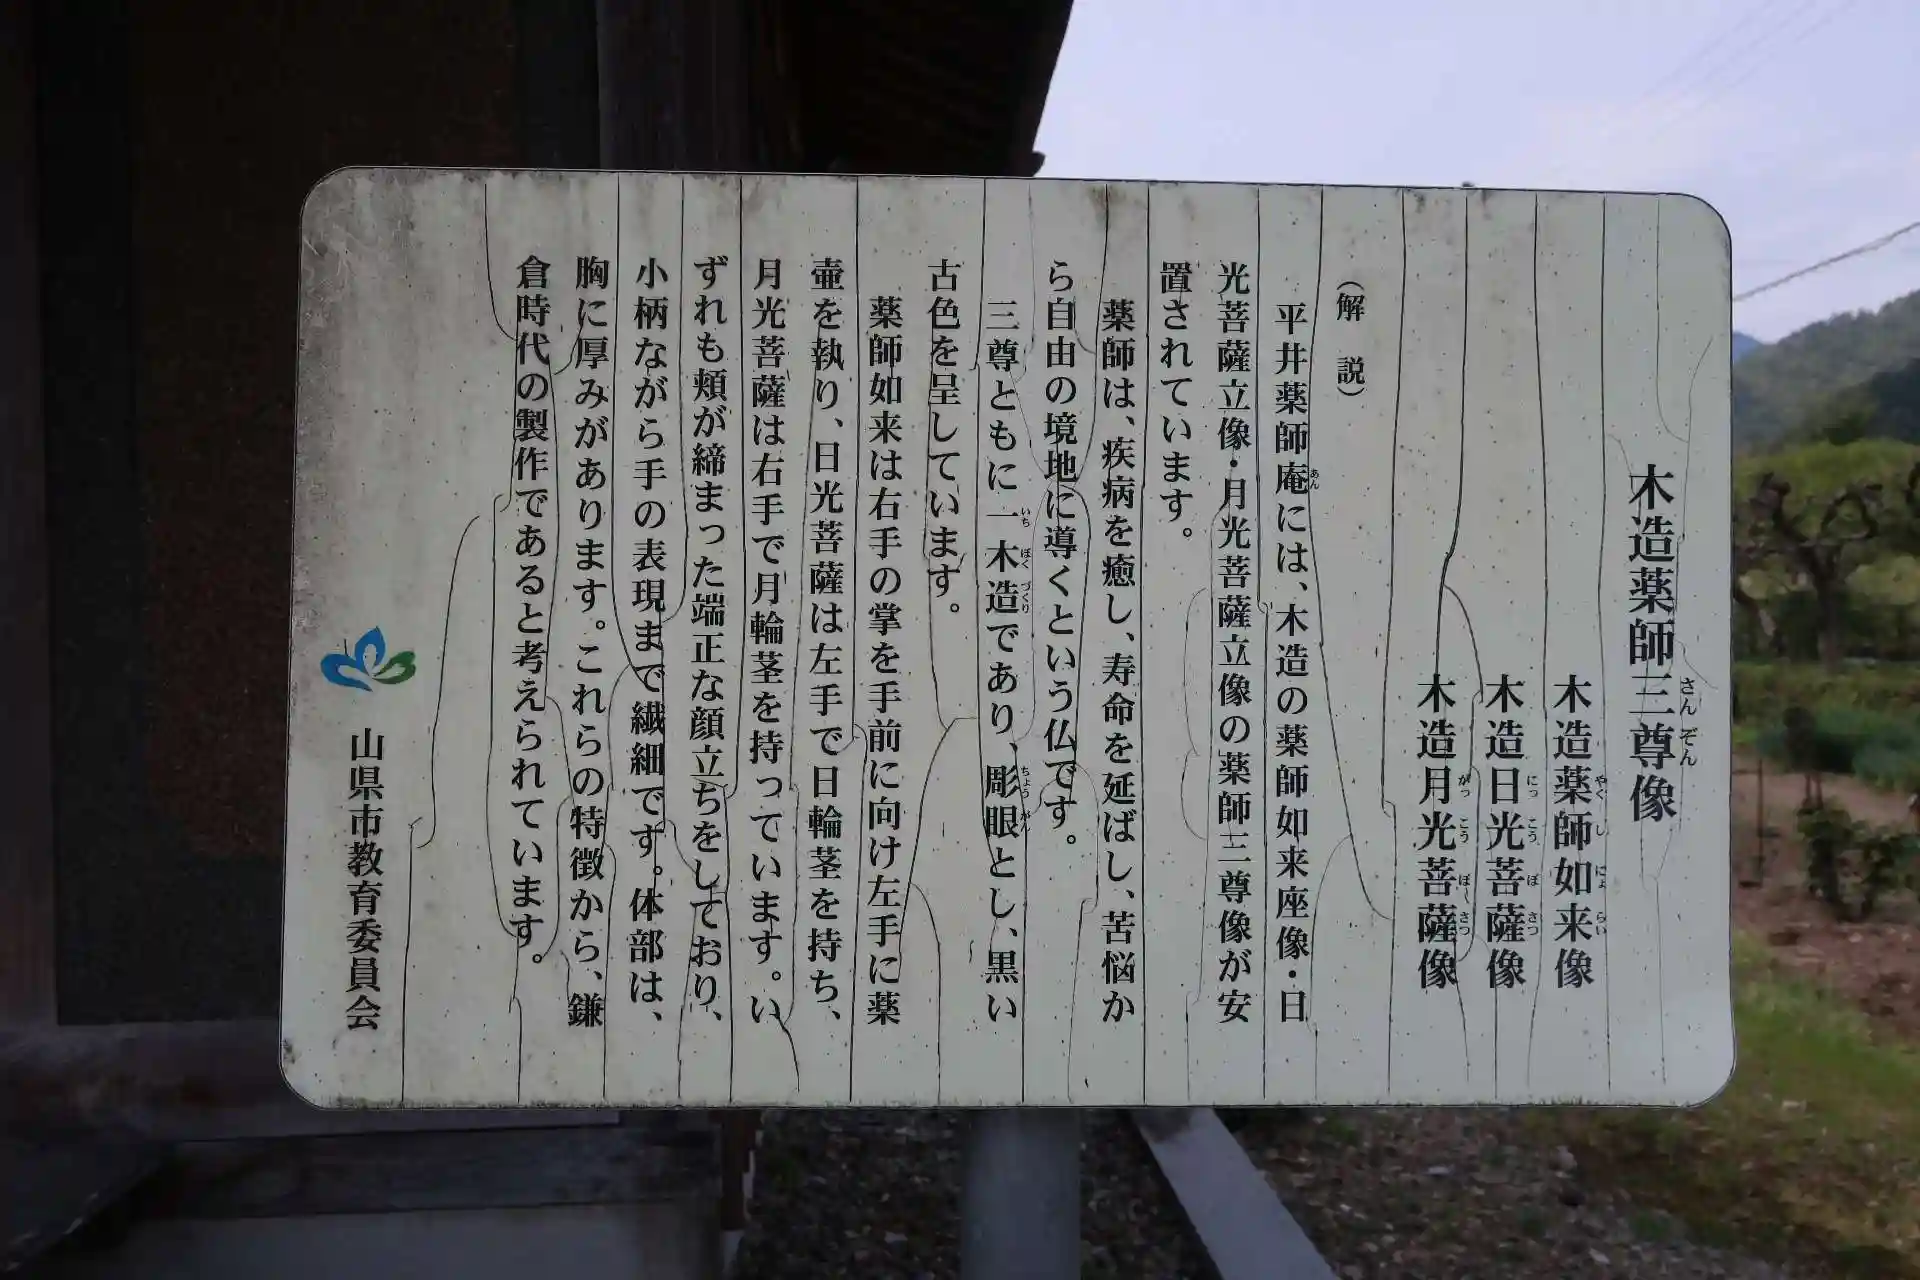 木造薬師三尊像
木造薬師如来像
木造日光菩薩像
木造月光菩薩像
（解　説）
　平井薬師庵には、木造の薬師如来座像・日
光菩薩立像・月光菩薩立像の薬師三尊像が安
置されています。
　薬師は、疾病を癒し、寿命を延ばし、苦悩か
ら自由の境地に導くという仏です。
　三尊ともに一木造であり、彫眼とし、黒い
古色を呈しています。
　薬師如来は右手の掌を手前に向け左手に薬
壷を執り、日光菩薩は左手で日輪茎を持ち、
月光菩薩は右手で月輪茎を持っています。い
ずれも頬が締まった端正な顔立ちをしており、
小柄ながら手の表現まで繊細です。体部は、
胸に厚みがあります。これらの特徴から、鎌
倉時代の製作であると考えられています。
山県市教育委員会